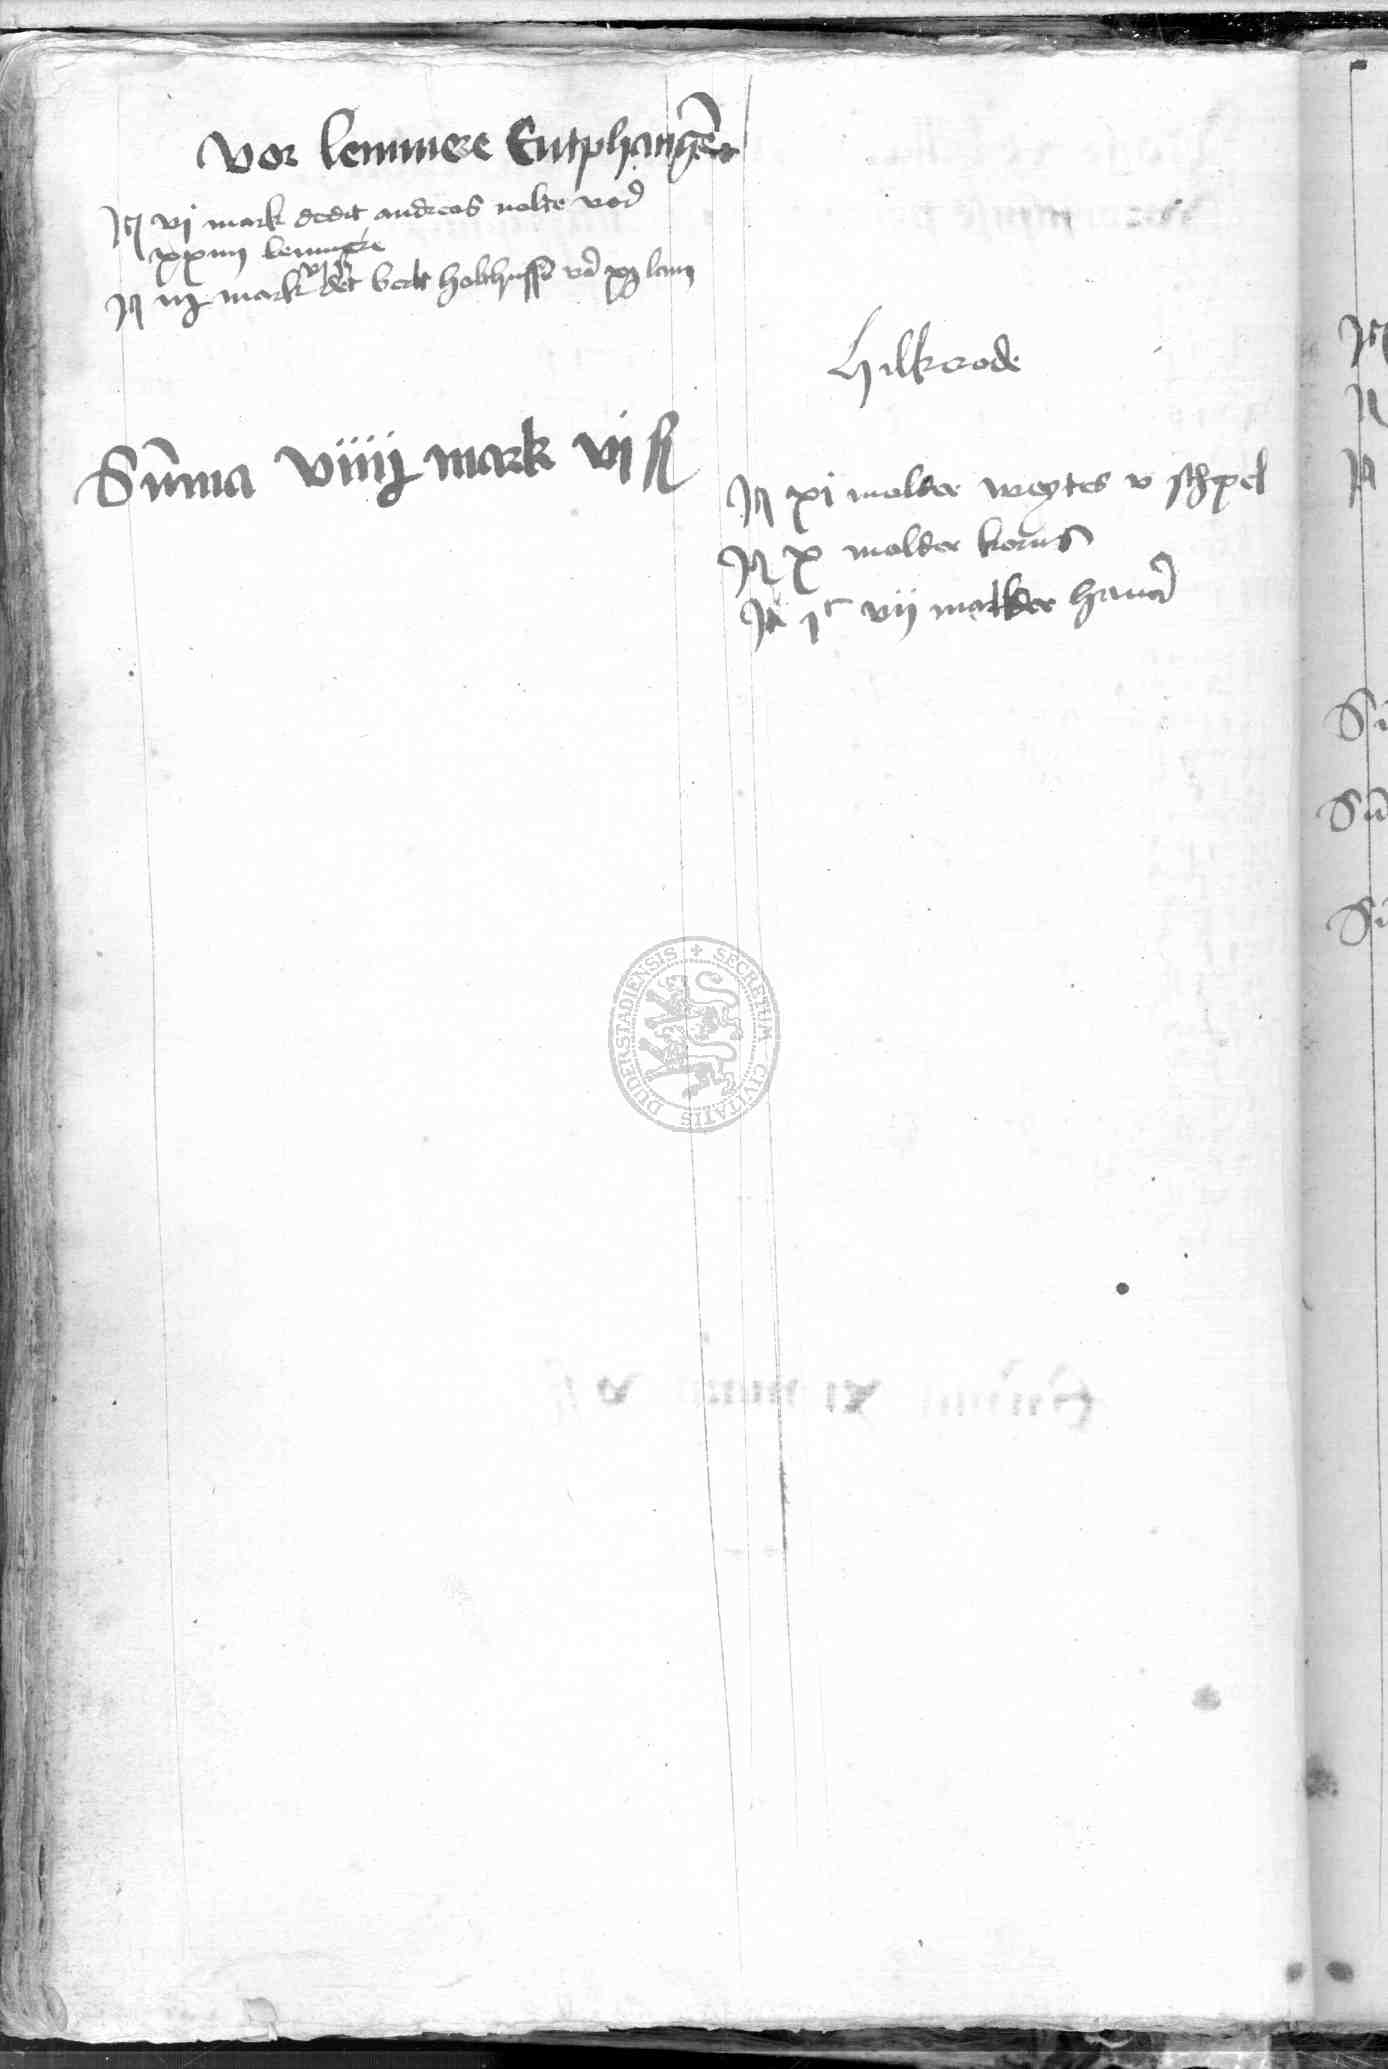 Vor lemmere Entphangen
It vi mark dedit andreas nolte vor
xxiiij lemmere
It iij mark vi ß det bertt holthusse vor xij lem
Suma viiij mark vi ß
hilkerode
It xi molder weytes v schpel
It x molder korns
It jc vij malder haver
SECRETUM CIVITATIS DUDERSTADIENSIS